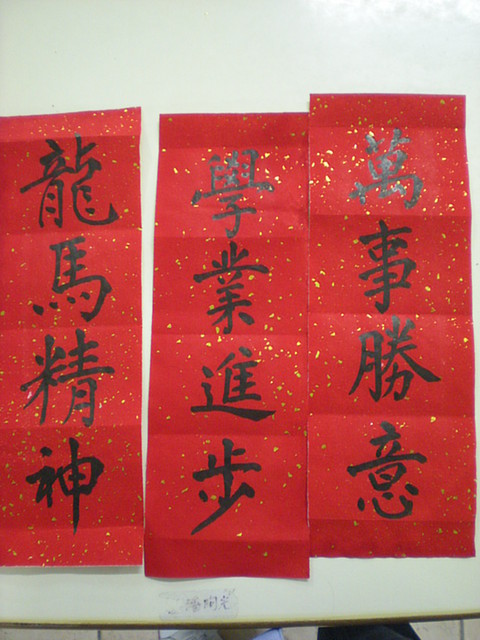 萬事勝意
學業進步
龍馬精神